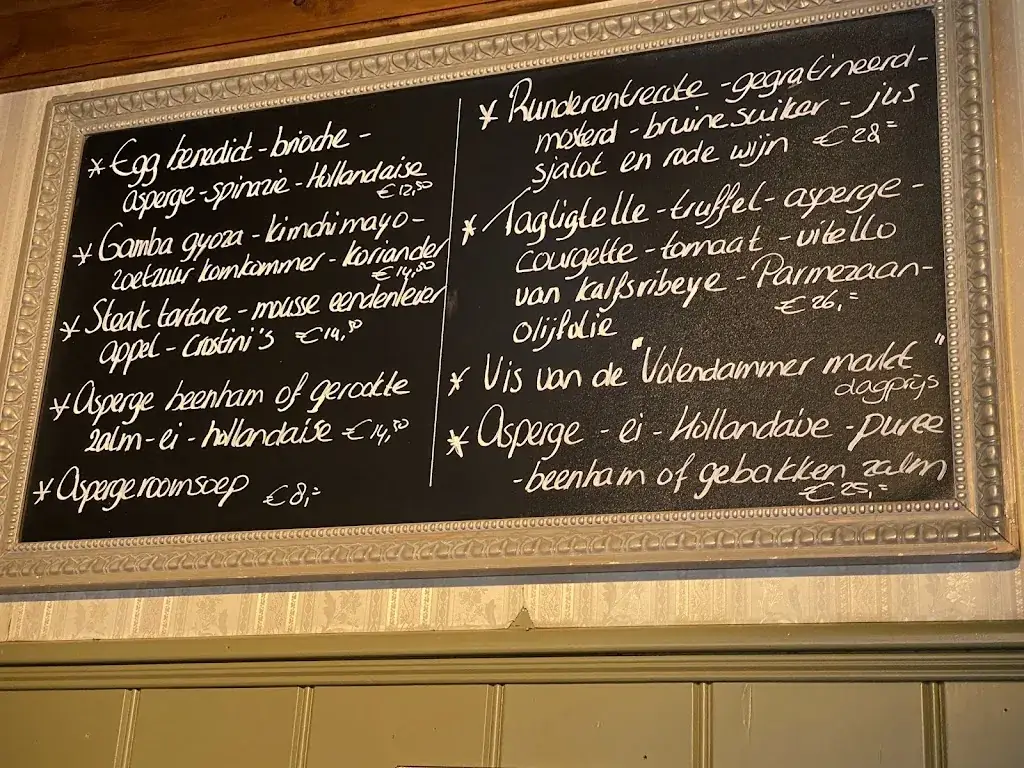 * Egg benedict - brioche -
asperge - spinazie - Hollandaise
€ 12,50
* Gamba gyoza - kimchi mayo -
zoetzuur komkommer - koriander
€ 14,50
* Steak tartare - mousse eendenlever
appel - crostini's € 14,50
* Asperge beenham of gerookte
zalm - ei - hollandaise € 14,50
* Aspergeroomsoep € 8,=
* Runderentrecote - gegratineerd -
mosterd - bruine suiker - jus
sjalot en rode wijn € 28=
* Tagligtelle - truffel - asperge -
courgette - tomaat - vitello
van kalfsribeye - Parmezaan -
€ 26,=
olijfolie
* Vis van de "Volendammer markt"
dagprijs
* Asperge - ei - Hollandaise - puree
- beenham of gebakken zalm
€ 25,=